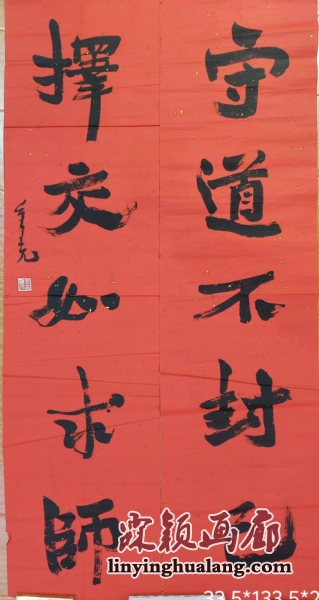 守道不封己
擇交如求師
霖颖画廊
linyinghualang.com
33.5*133.5*2